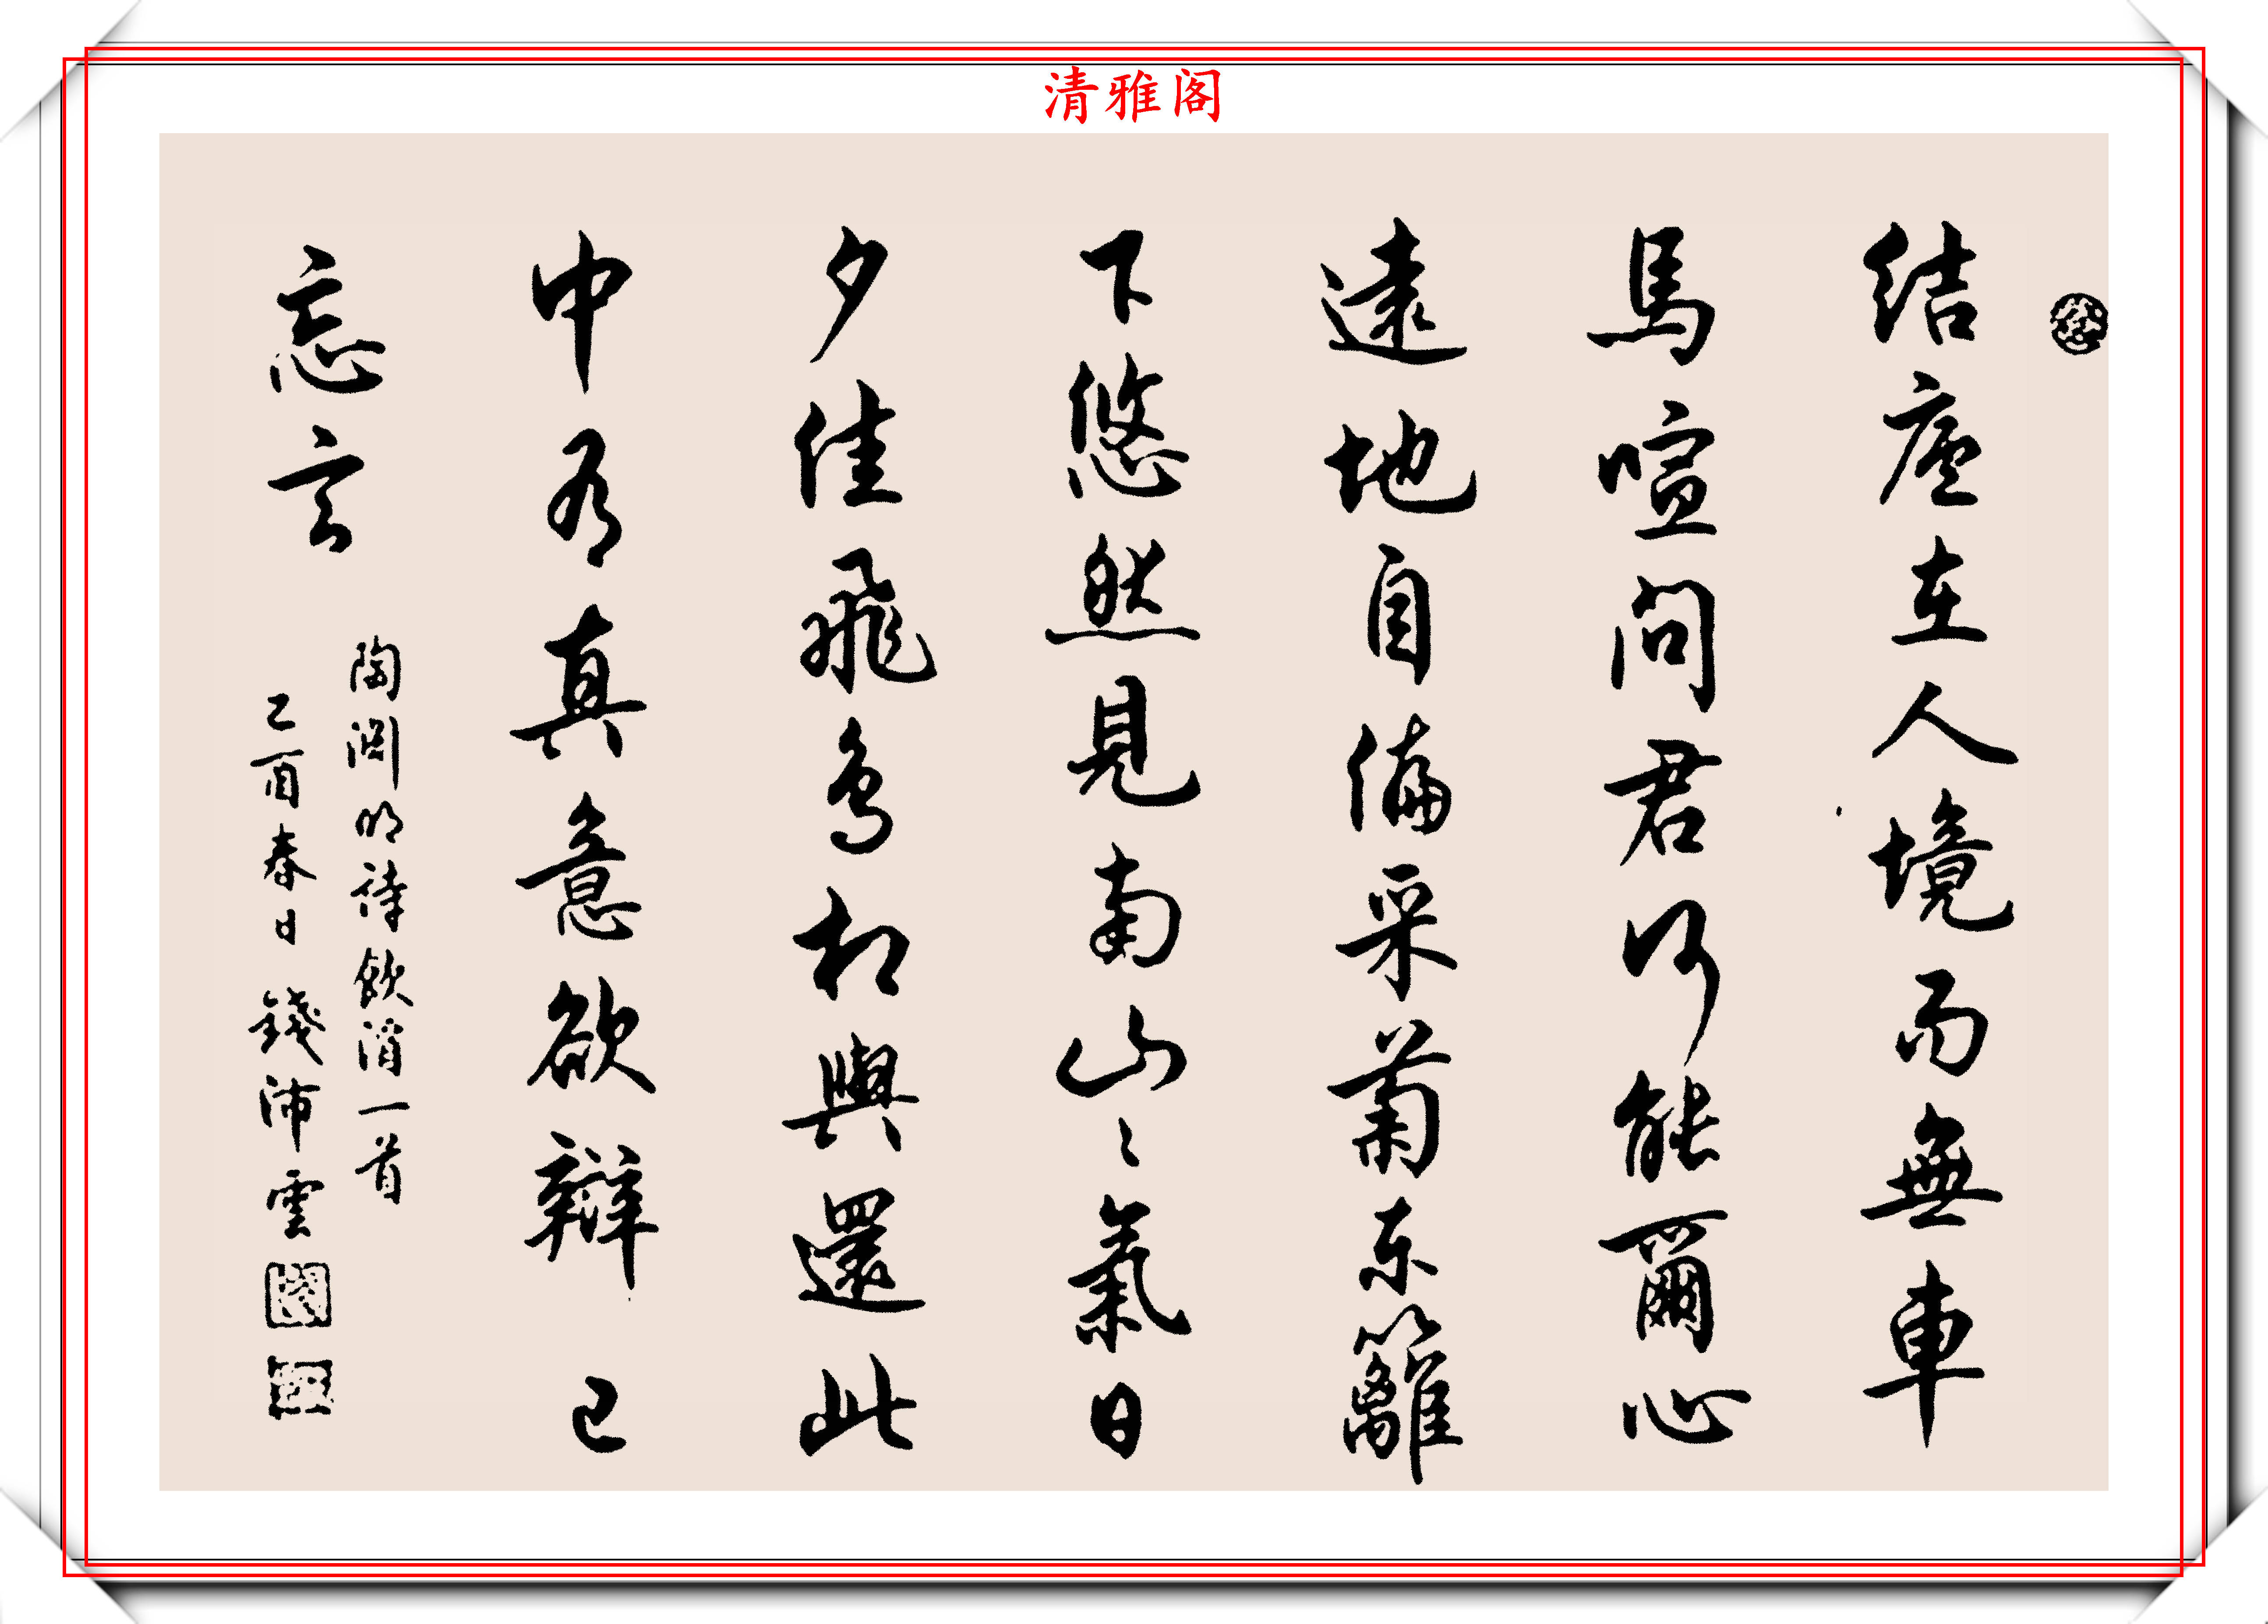 清雅阁
结廬在人境而無車
馬喧問君何能爾心
遠地自偏采菊东籬
下悠然見南山〻氣日
夕佳飛鳥相與還此
中有真意欲辯已
忘言
陶渊明詩飲酒一首
乙酉春日錢沛雲